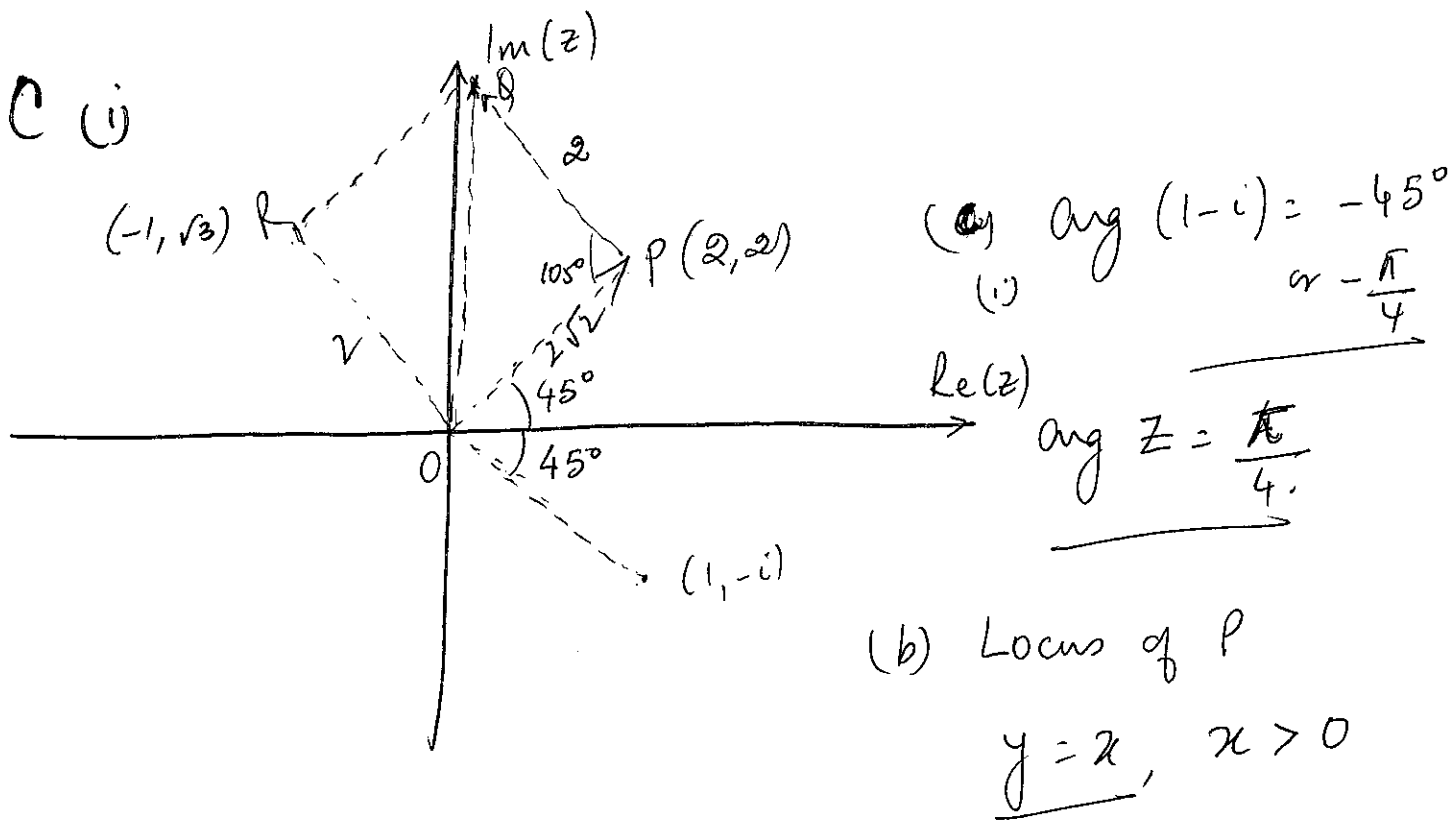 C (i)
Im(z)
Q
2
(-1, √3) R
P (2,2)
105°
2√2
2
45°
45°
O
Re(z)
(1, -i)
(a) arg (1-i) = -45°
(i) or -π/4
arg z = π/4.
(b) Locus of P
y = x, x > 0